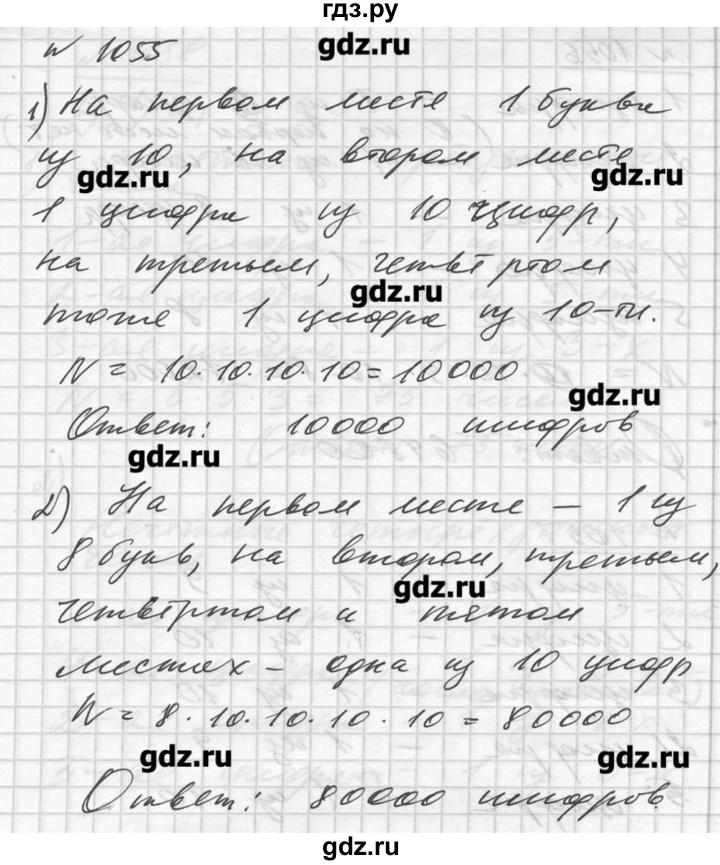 гдз.ру
gdz.ru
№ 1055
1) На первом месте 1 буква
из 10, на втором месте
gdz.ru
gdz.ru
1 цифра из 10 цифр,
на третьем, четвёртом
gdz.ru
тоже 1 цифра из 10-ти.
N = 10·10·10·10 = 10000
gdz.ru
Ответ: 10000 шифров
gdz.ru
2) На первом месте – 1 из
8 букв, на втором, третьем,
gdz.ru
четвёртом и пятом
местах – одна из 10 цифр
N = 8·10·10·10·10 = 80000
gdz.ru
gdz.ru
Ответ: 80000 шифров.
gdz.ru